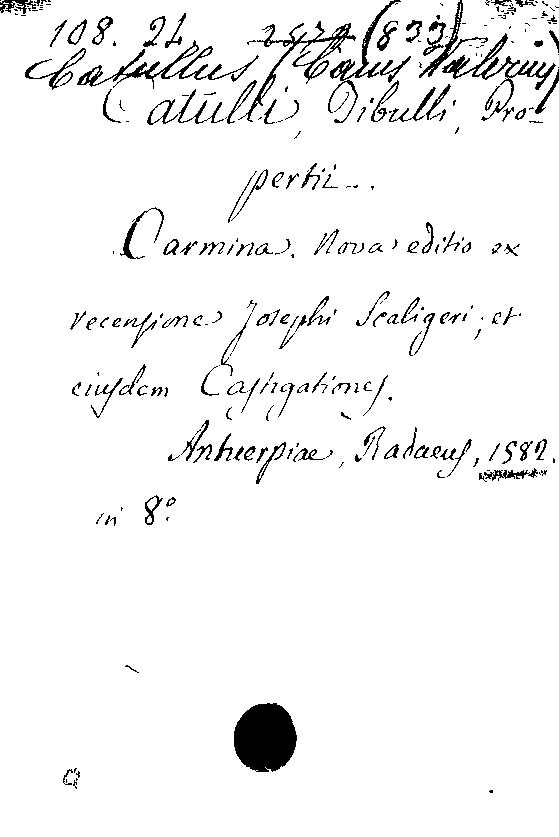 108. 21 2572 (833)
Catullus (Caius Valerius)
Catulli, Tibulli, Pro-
pertii...
Carmina. Nova editio ex
recensione Josephi Scaligeri; et
eiusdem Castigationes.
Antuerpiae, Radaeus, 1582.
in 8º
Q